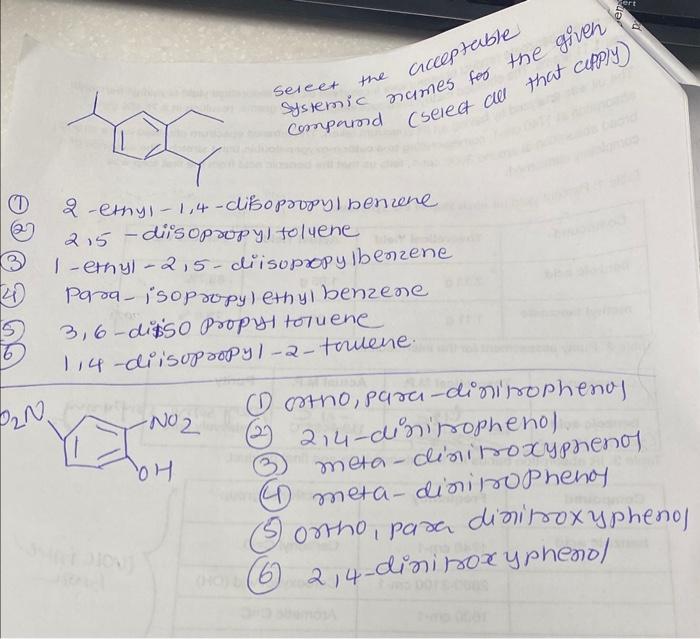 select the acceptable
systemic names for the given
compound (select all that apply)
① 2-ethyl-1,4-diisopropylbenzene
② 2,5-diisopropyltoluene
③ 1-ethyl-2,5-diisopropylbenzene
④ para-isopropylethylbenzene
⑤ 3,6-diisopropyltoluene
⑥ 1,4-diisopropyl-2-toluene.
O2N
NO2
OH
① ortho, para-dinitrophenol
② 2,4-dinitrophenol
③ meta-dinitroxyphenol
④ meta-dinitrophenol
⑤ ortho, para dinitroxyphenol
⑥ 2,4-dinitroxyphenol